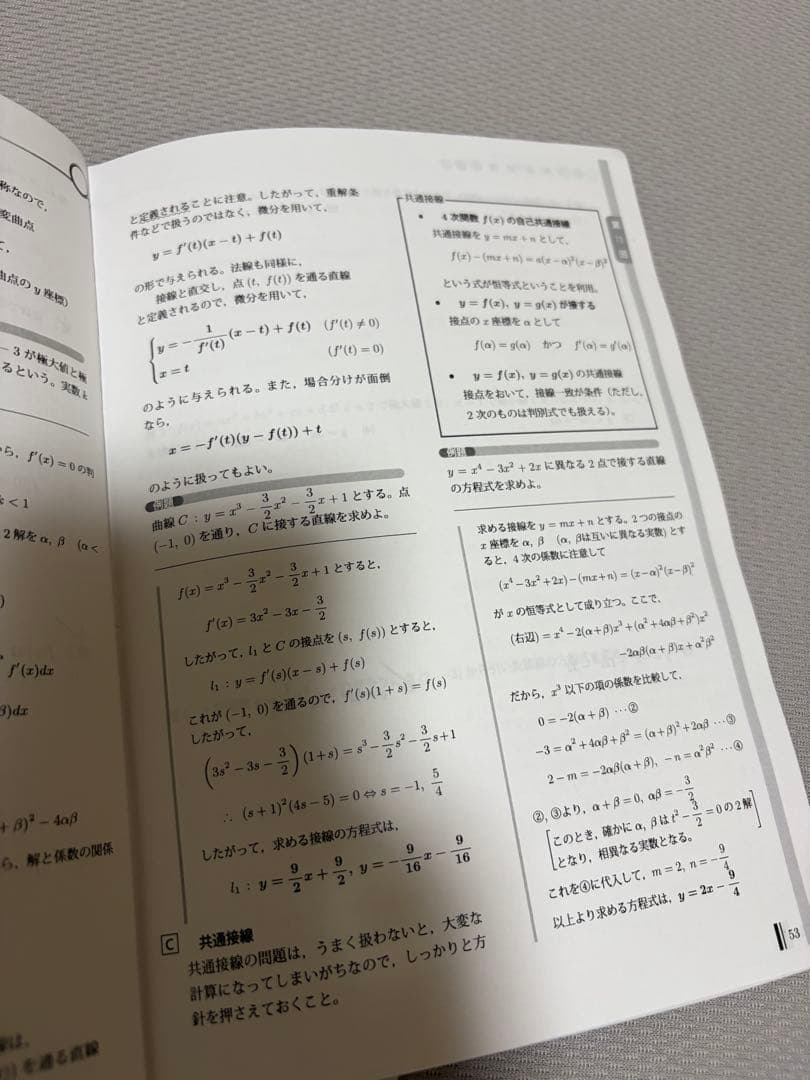 称なので,
変曲点
て,
曲点の y 座標)
- 3 が極大値と極
るという。実数 k
から, f′(x) = 0 の判
k < 1
2 解を α, β (α <
f′(x)dx
β)dx
+ β)² − 4αβ
ら, 解と係数の関係
を通る直線
と定義されることに注意。したがって, 重解条
件などで扱うのではなく, 微分を用いて,
y = f′(t)(x − t) + f(t)
の形で与えられる。法線も同様に,
接線と直交し, 点 (t, f(t)) を通る直線
と定義されるので, 微分を用いて,
{ y = − 1/f′(t) (x − t) + f(t) (f′(t) ≠ 0)
x = t (f′(t) = 0)
のように与えられる。また, 場合分けが面倒
なら,
x = −f′(t)(y − f(t)) + t
のように扱ってもよい。
例題
曲線 C : y = x³ − 3/2 x² − 3/2 x + 1 とする。点
(−1, 0) を通り, C に接する直線を求めよ。
f(x) = x³ − 3/2 x² − 3/2 x + 1 とすると,
f′(x) = 3x² − 3x − 3/2
したがって, l₁ と C の接点を (s, f(s)) とすると,
l₁ : y = f′(s)(x − s) + f(s)
これが (−1, 0) を通るので, f′(s)(1 + s) = f(s)
したがって,
(3s² − 3s − 3/2)(1 + s) = s³ − 3/2 s² − 3/2 s + 1
∴ (s + 1)²(4s − 5) = 0 ⇔ s = −1, 5/4
したがって, 求める接線の方程式は,
l₁ : y = 9/2 x + 9/2, y = − 9/16 x − 9/16
C 共通接線
共通接線の問題は, うまく扱わないと, 大変な
計算になってしまいがちなので, しっかりと方
針を押さえておくこと。
共通接線
• 4 次関数 f(x) の自己共通接線
共通接線を y = mx + n として,
f(x) − (mx + n) = a(x − α)²(x − β)²
という式が恒等式ということを利用。
• y = f(x), y = g(x) が接する
接点の x 座標を α として
f(α) = g(α) かつ f′(α) = g′(α)
• y = f(x), y = g(x) の共通接線
接点をおいて, 接線一致が条件 (ただし,
2 次のものは判別式でも扱える)。
第
講
例題
y = x⁴ − 3x² + 2x に異なる 2 点で接する直線
の方程式を求めよ。
求める接線を y = mx + n とする。2 つの接点の
x 座標を α, β (α, β は互いに異なる実数) とす
ると, 4 次の係数に注意して
(x⁴ − 3x² + 2x) − (mx + n) = (x − α)²(x − β)²
が x の恒等式として成り立つ。ここで,
(右辺) = x⁴ − 2(α + β)x³ + (α² + 4αβ + β²)x²
−2αβ(α + β)x + α²β²
だから, x³ 以下の項の係数を比較して,
0 = −2(α + β) …②
−3 = α² + 4αβ + β² = (α + β)² + 2αβ …③
2 − m = −2αβ(α + β), −n = α²β² …④
②, ③より, α + β = 0, αβ = − 3/2
[このとき, 確かに α, β は t² − 3/2 = 0 の 2 解
となり, 相異なる実数となる。]
これを④に代入して, m = 2, n = − 9/4
以上より求める方程式は, y = 2x − 9/4
53